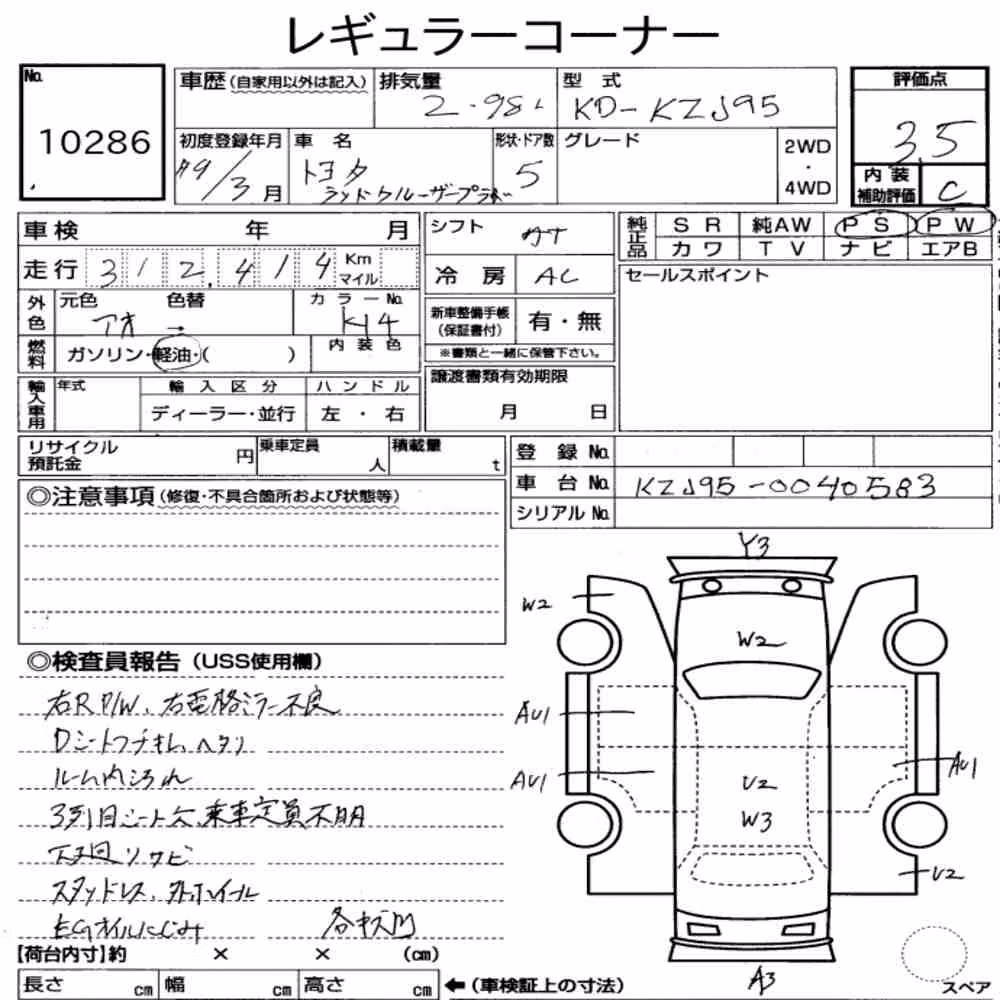 レギュラーコーナー
No. 10286
車歴 (自家用以外は記入)
排気量 2.98 L
型 式 KD-KZJ95
評価点 3.5
初度登録年月 H9/3月
車 名 トヨタ ランドクルーザープラド
形状・ドア数 5
グレード
2WD ・ 4WD
内装補助評価 C
車検 年 月
シフト AT
純正品 SR 純AW PS PW
カワ TV ナビ エアB
走行 312,414 Km マイル
冷 房 AC
セールスポイント
外色 元色 アオ → 色替
カラーNo. K14
新車整備手帳(保証書付) 有・無
※書類と一緒に保管下さい。
燃料 ガソリン・軽油・( )
内装色
譲渡書類有効期限
月 日
輸入車用 年式
輸入区分 ディーラー・並行
ハンドル 左・右
リサイクル預託金 円
乗車定員 人
積載量 t
登 録 No.
車 台 No. KZJ95-0040583
シリアル No.
◎注意事項 (修復・不具合箇所および状態等)
◎検査員報告 (USS使用欄)
右R P/W、右電格ミラー不良
Dシートフチキレ、ヘタリ
ルーム内汚れ
3列目シート欠、乗車定員不明
下廻りサビ
スタッドレス、外ホイール
EGオイルにじみ
Y3
W2
W2
AU1
AU1
AU1
U2
W3
U2
A3
【荷台内寸】約 × × (cm)
長さ cm 幅 cm 高さ cm
←(車検証上の寸法)
スペア